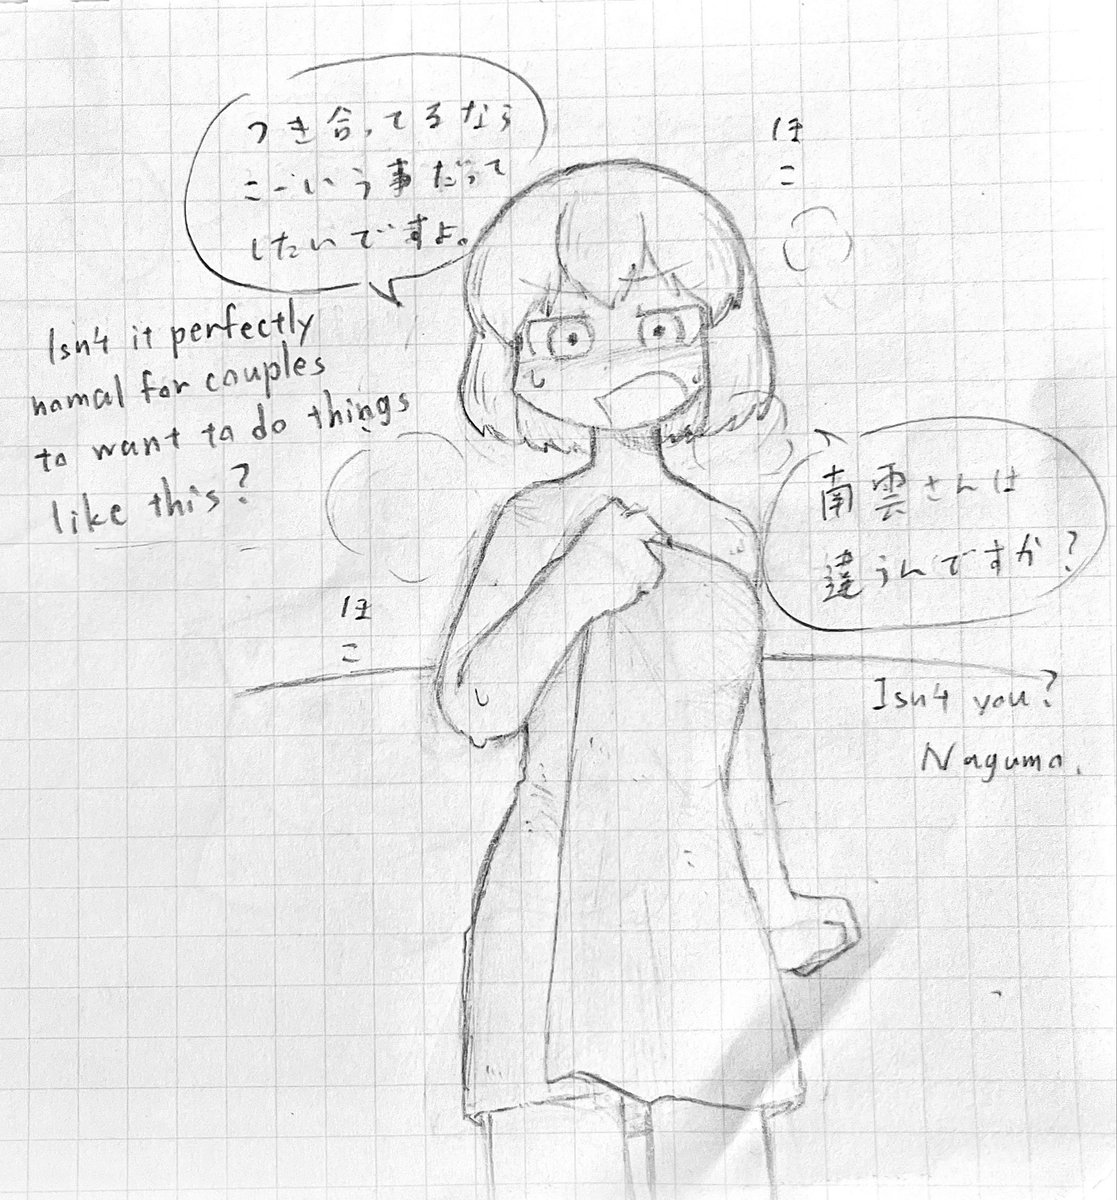 つき合ってるなら
こーいう事だって
したいですよ。
Isn't it perfectly
normal for couples
to want to do things
like this?
ほ
こ
南雲さんは
違うんですか?
Isn't you?
Nagumo.
ほ
こ